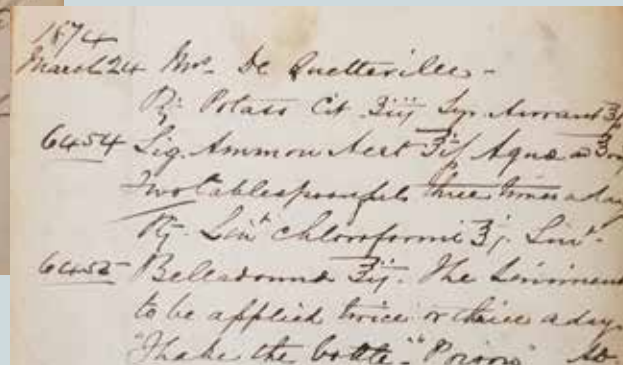 1874
March 24 Mrs De Quetteville -
Rx Potass Cit ʒiij Syr. Aurant ʒ
6454 Liq. Ammon Acet ʒi Aquæ ad ʒ
Two tablespoonfuls three times a day
Rx Lint Chloroformi ʒj. Lint
6455 Belladonna ʒij. The Liniment
to be applied twice or thrice a day.
"Shake the bottle" "Poison"